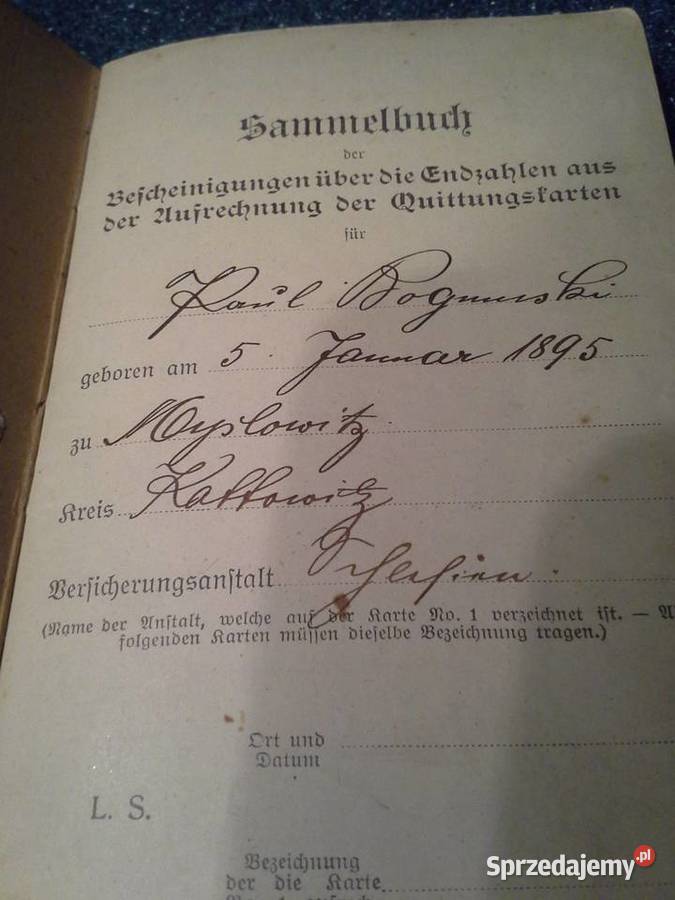 Sammelbuch
der
Bescheinigungen über die Endzahlen aus
der Aufrechnung der Quittungskarten
für
Paul
geboren am 5. Januar 1895
zu Myslowitz
Kreis Kattowitz
Versicherungsanstalt Schlesien.
(Name der Anstalt, welche auf der Karte No. 1 verzeichnet ist. —
folgenden Karten müssen dieselbe Bezeichnung tragen.)
Ort und
Datum
L. S.
Bezeichnung
der die Karte
Sprzedajemy.pl